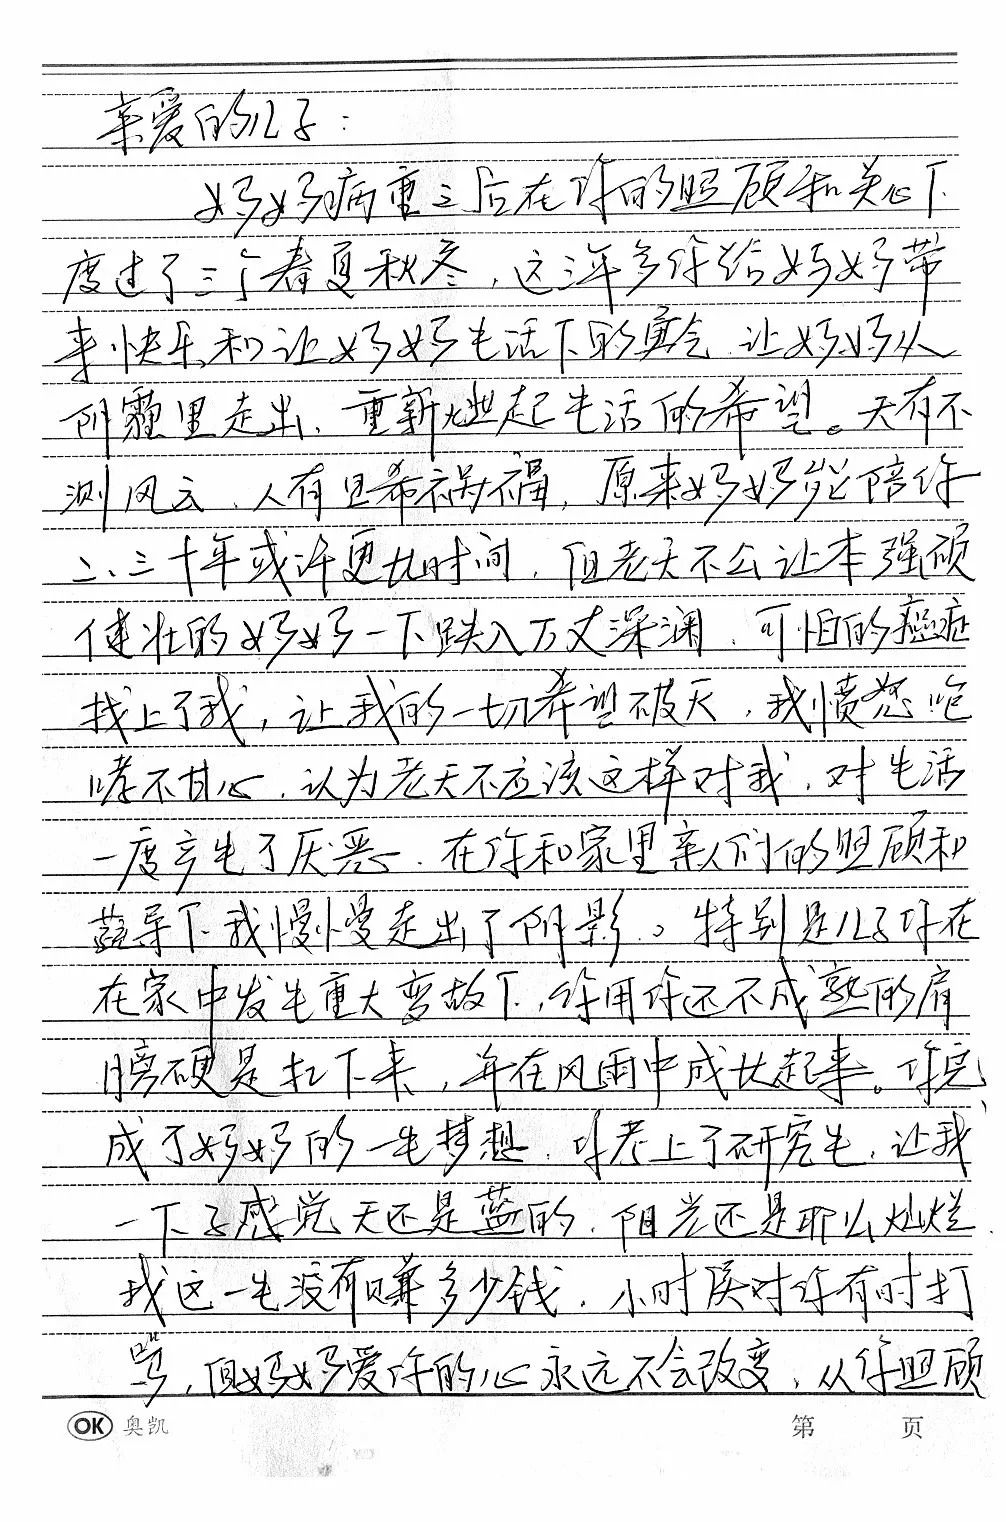 亲爱的儿子：
妈妈病重之后在你的照顾和关心下
度过了三个春夏秋冬，这三年多你给妈妈带
来快乐和让妈妈生活下的勇气，让妈妈从
阴霾里走出，重新燃起生活的希望。天有不
测风云，人有旦希祸福，原来妈妈能陪你
二、三十年或许更长时间，但老天不公让本强硕
健壮的妈妈一下跌入万丈深渊，可怕的癌症
找上了我，让我的一切希望破灭，我愤怒咆
哮不甘心，认为老天不应该这样对我，对生活
一度产生了厌恶，在你和家里亲人们的照顾和
疏导下我慢慢走出了阴影。特别是儿子你在
在家中发生重大变故下，你用你还不成熟的肩
膀硬是扛下来，并在风雨中成长起来。你完
成了妈妈的一生梦想，你考上了研究生，让我
一下子感觉天还是蓝的，阳光还是那么灿烂
我这一生没有赚多少钱，小时侯对你有时打
骂，但妈妈爱你的心永远不会改变，从你照顾
OK 奥凯 第 页